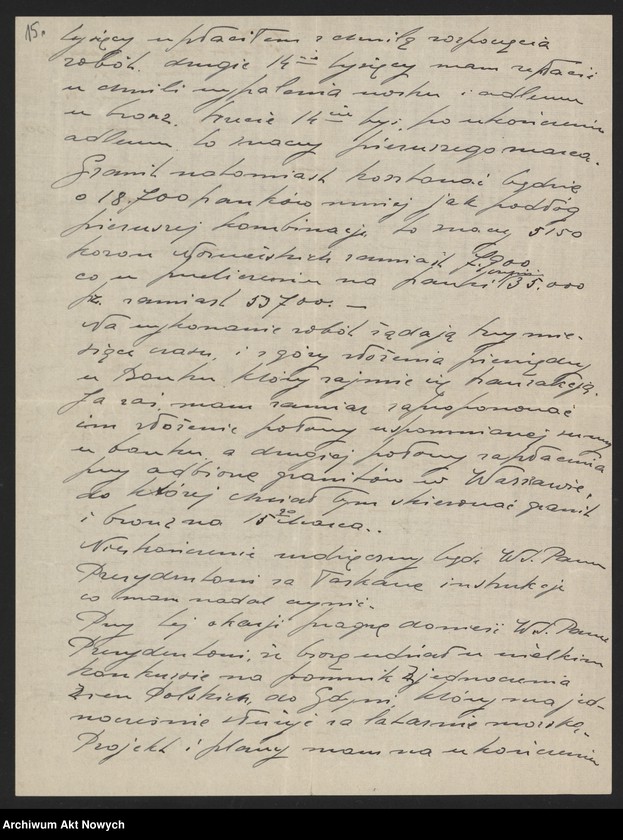 15.
tysięcy wpłaciłem z chwilą rozpoczęcia
robót. drugie 14-cie tysięcy mam wpłacić
w chwili wypalenia wosku i odlewu
w bronz. trzecie 14-cie tys. po ukończeniu
odlewu to znaczy pierwszego marca.
Granit natomiast kosztować będzie
o 18.700 franków mniej jak podług
pierwszej kombinacji, to znaczy 5150
koron norweskich zamiast 7.900
co w przeliczeniu na franki 35.000
fr. zamiast 53700. —
Na wykonanie robót żądają trzy mie-
siące czasu, i z góry złożenia pieniędzy
w Banku, który zajmie się tranzakcją.
Ja zaś mam zamiar zaproponować
im złożenie połowy wspomnianej sumy
w banku, a drugiej połowy zapłacenia
przy odbiorze granitów w Warszawie,
do której chciałbym skierować granit
i bronz na 15-go Marca..
Nieskończenie wdzięczny będę WJ. Panu
Prezydentowi za łaskawe instrukcje
co mam nadal czynić.
Przy tej okazji pragnę donieść WJ. Panu
Prezydentowi, że biorę udział w wielkim
konkursie na pomnik Zjednoczenia
Ziem Polskich, do Gdyni, który ma jed-
nocześnie służyć za latarnię morską.
Projekt i plany mam na ukończeniu
Archiwum Akt Nowych